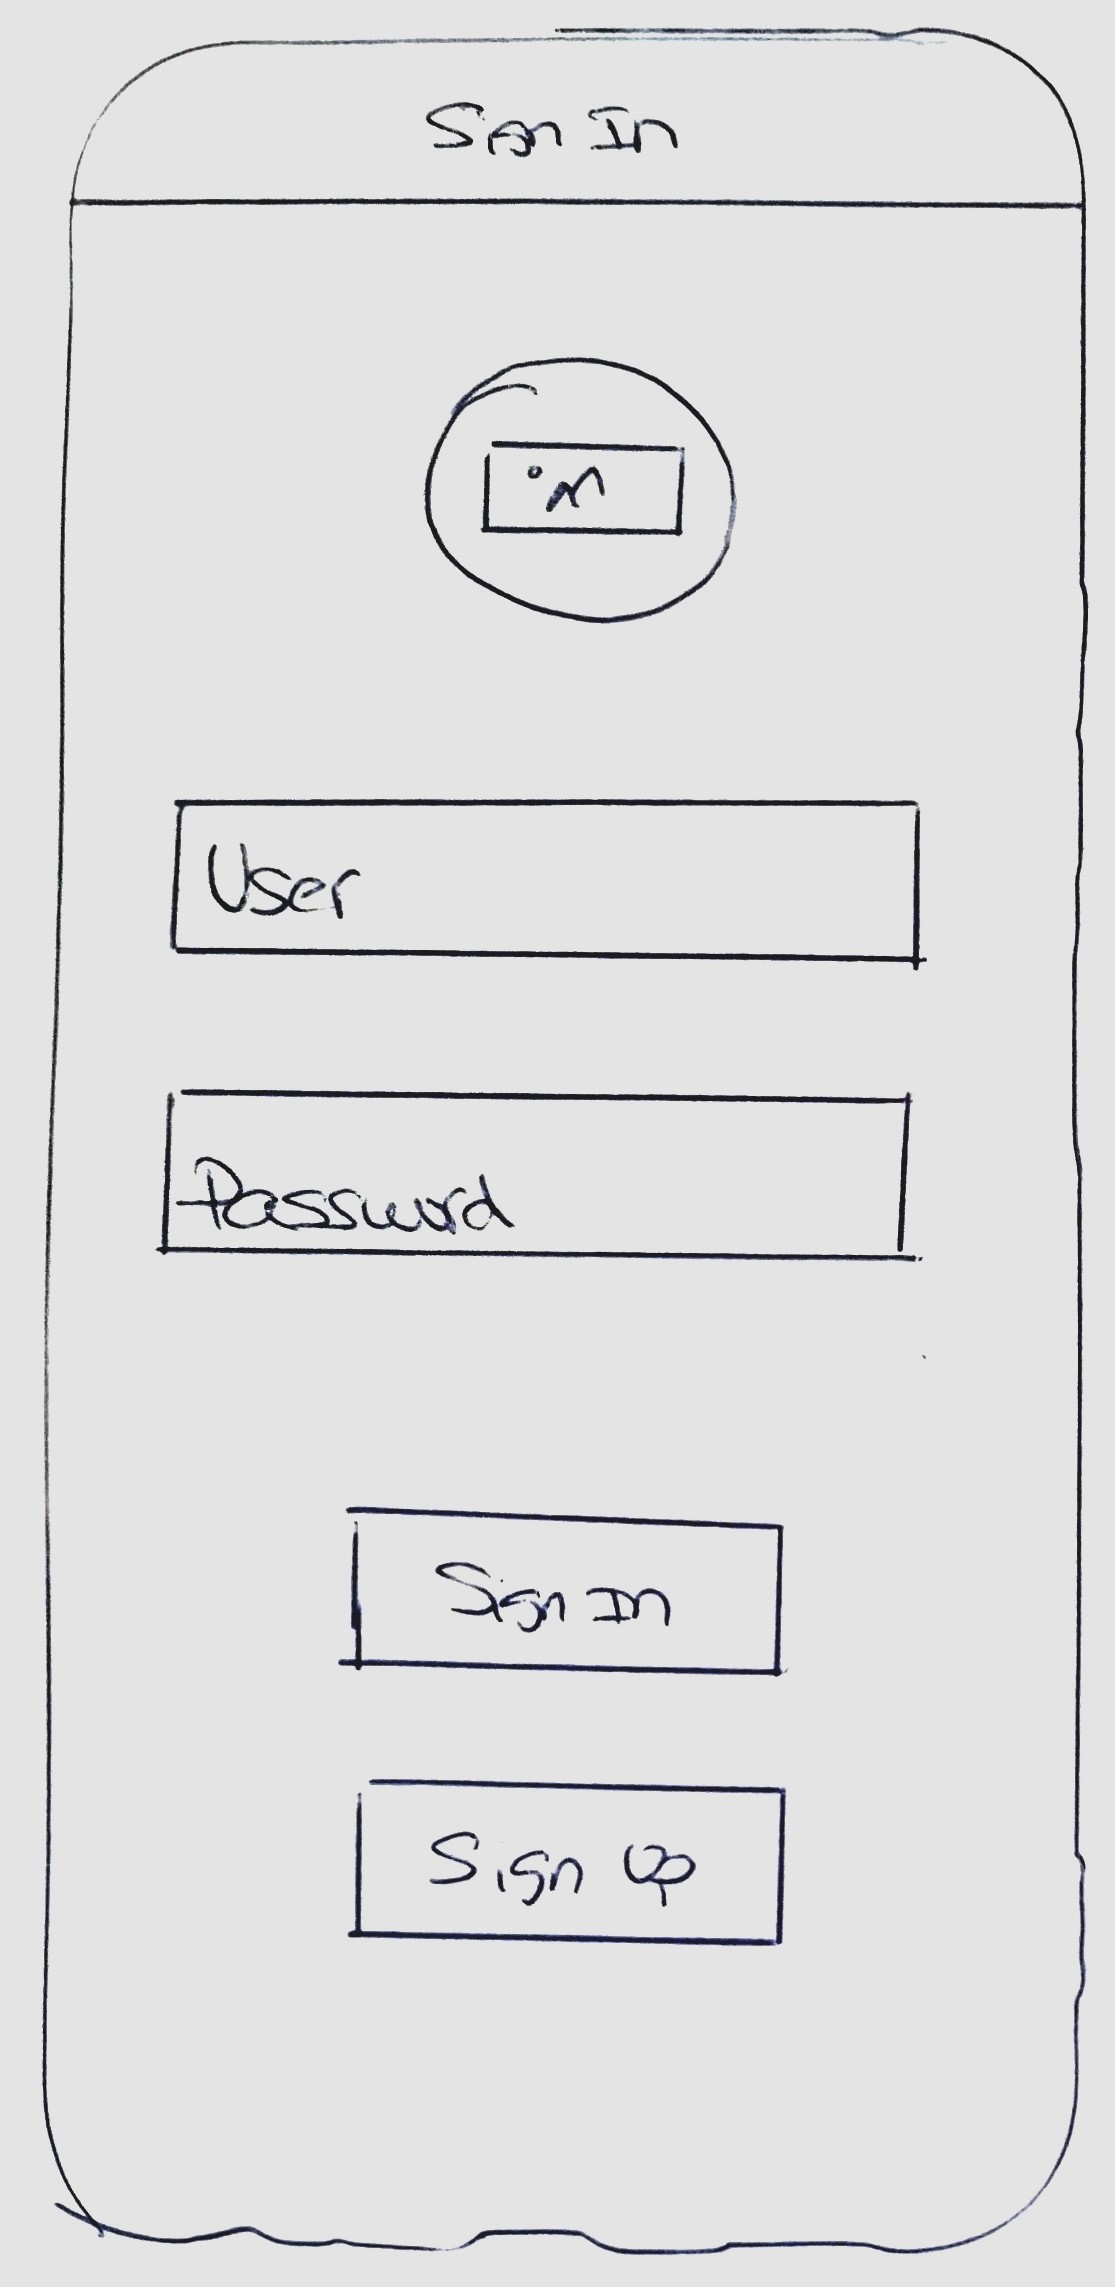 Sign In
User
Password
Sign In
Sign Up